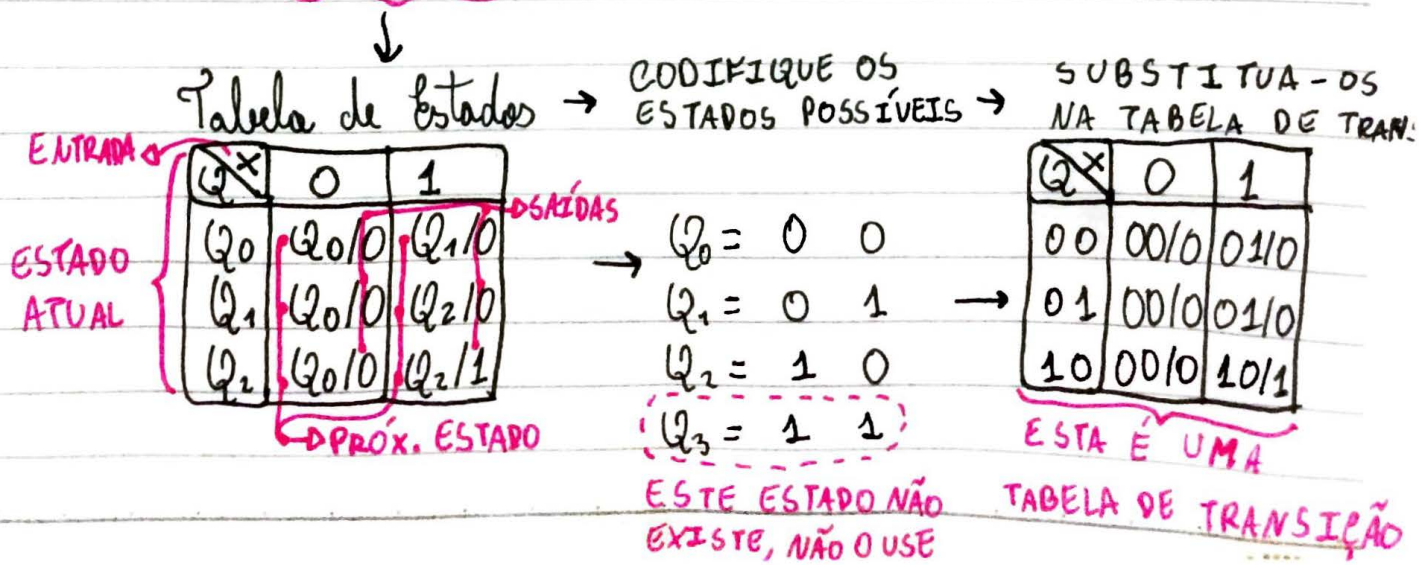 Tabela de Estados → CODIFIQUE OS ESTADOS POSSÍVEIS → SUBSTITUA-OS NA TABELA DE TRAN.
ENTRADA
Q X 0 1
Q0 Q0/0 Q1/0
Q1 Q0/0 Q2/0
Q2 Q0/0 Q2/1
ESTADO
ATUAL
SAÍDAS
PRÓX. ESTADO
→
Q0 = 0 0
Q1 = 0 1
Q2 = 1 0
Q3 = 1 1
ESTE ESTADO NÃO
EXISTE, NÃO O USE
→
Q X 0 1
00 00/0 01/0
01 00/0 01/0
10 00/0 10/1
ESTA É UMA
TABELA DE TRANSIÇÃO